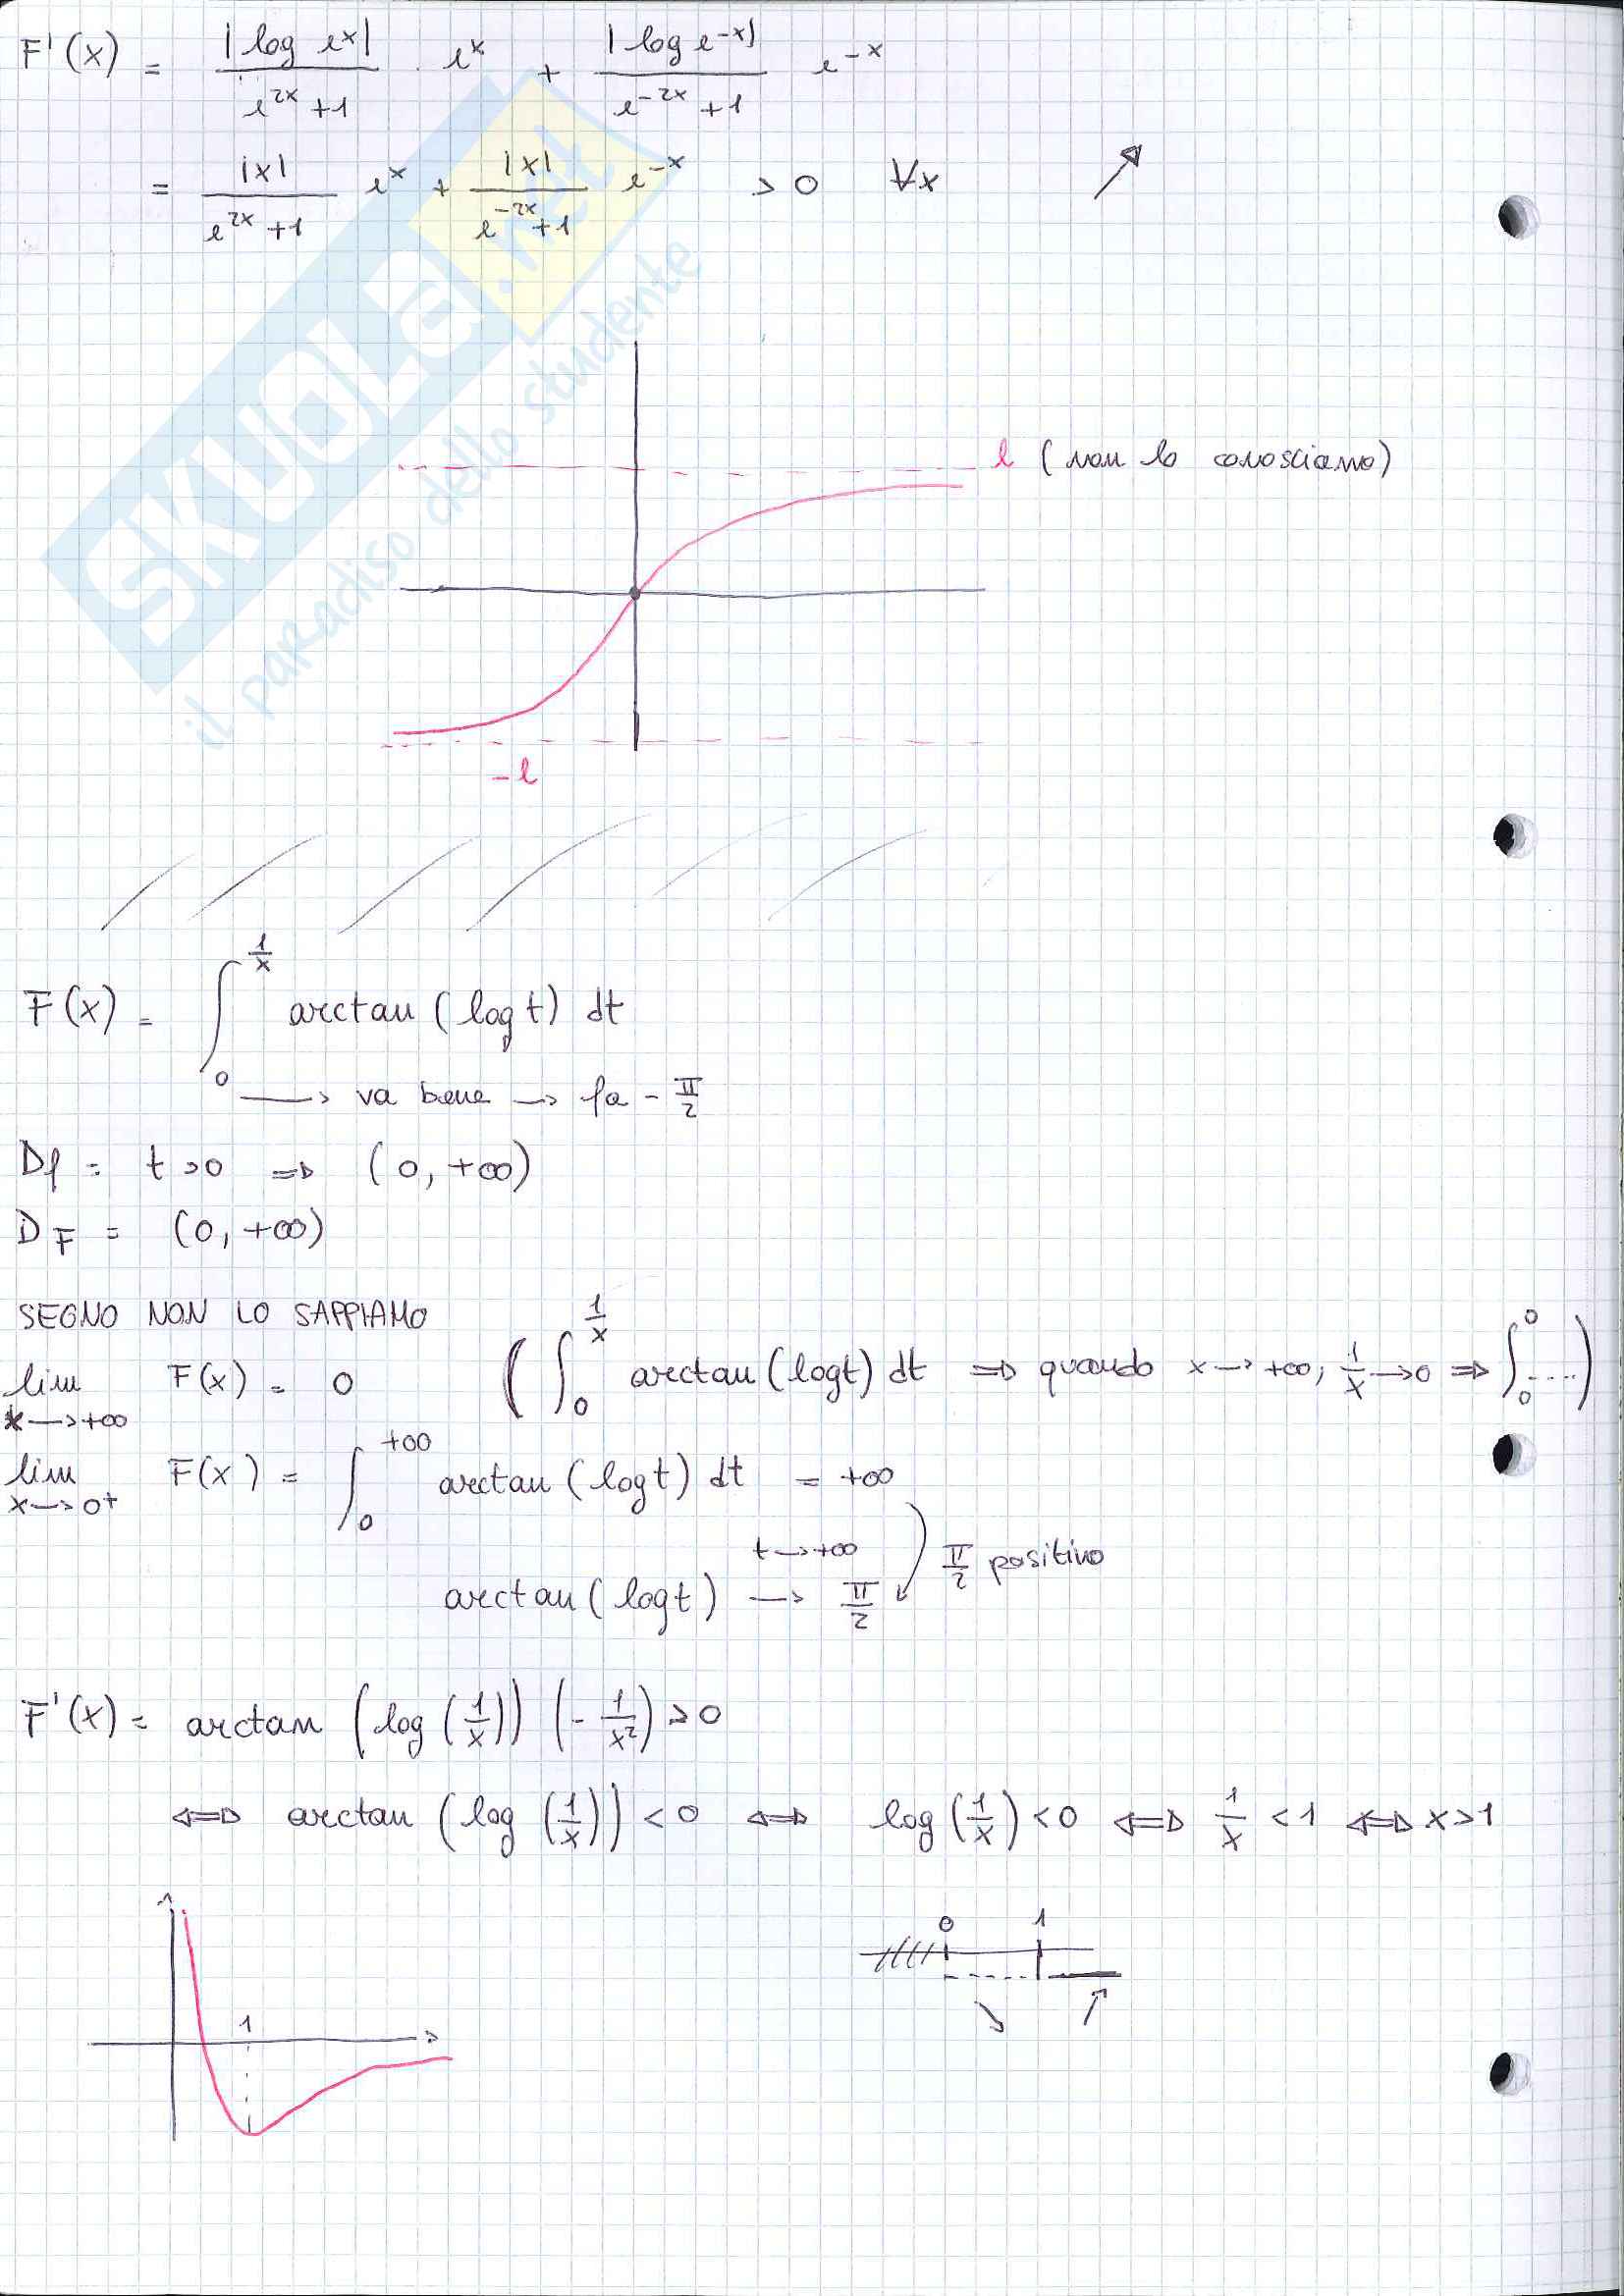 F'(x) = |log eˣ| / (e²ˣ + 1) · eˣ + |log e⁻ˣ| / (e⁻²ˣ + 1) e⁻ˣ
= |x| / (e²ˣ + 1) eˣ + |x| / (e⁻²ˣ + 1) e⁻ˣ > 0 ∀x ↗
SKUOLA.net
il paradiso dello studente
l (non lo conosciamo)
-l
F(x) = ∫₀^{1/x} arctan (log t) dt
⟶ va bene → fa - π/2
Df = t > 0 ⇒ (0, +∞)
D_F = (0, +∞)
SEGNO NON LO SAPPIAMO
lim x→+∞ F(x) = 0 ( ∫₀^{1/x} arctan (log t) dt ⇒ quando x → +∞, 1/x → 0 ⇒ ∫₀⁰ .... )
lim x→0⁺ F(x) = ∫₀^{+∞} arctan (log t) dt = +∞
arctan (log t) → π/2 t→+∞ π/2 positivo
F'(x) = arctan (log (1/x)) (- 1/x²) > 0
⇔ arctan (log (1/x)) < 0 ⇔ log (1/x) < 0 ⇔ 1/x < 1 ⇔ x > 1
0 1
↘ ↗
1